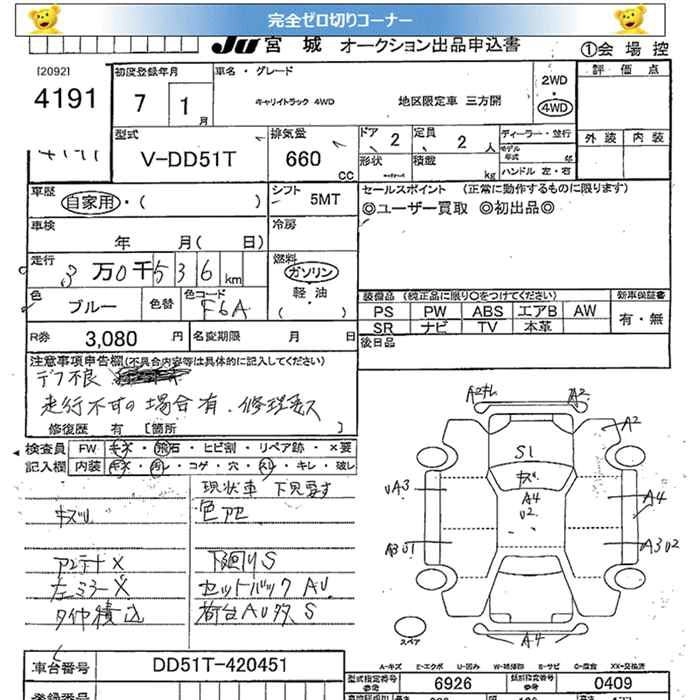 完全ゼロ切りコーナー
JU 宮 城 オークション出品申込書
①会 場 控
[2092]
4191
初度登録年月
7 1 月
車名・グレード
キャリイトラック 4WD 地区限定車 三方開
2WD
4WD
評 価 点
型式
V-DD51T
排気量
660 CC
ドア 2
定員 2 人
形状
積載 kg
ディーラー・並行
モデル年式 年
ハンドル 左・右
外 装 内 装
車歴
自家用・( )
シフト
5MT
セールスポイント (正常に動作するものに限ります)
◎ユーザー買取 ◎初出品◎
車検
年 月( 日)
冷房
走行
3 万 0 千 5 3 6 km
燃料
ガソリン
軽・油
( )
色
ブルー
色替
色コード
F6A
装備品 (純正品に限り○をつけてください)
新車保証書
PS PW ABS エアB AW
SR ナビ TV 本革
有・無
R券 3,080 円
名変期限 月 日
後日品
注意事項申告欄(不具合内容等は具体的に記入してください)
デフ不良
走行不可の場合有、修理要ス
修復歴 有 [箇所 ]
検査員記入欄
FW キズ・飛石・ヒビ割・リペア跡・×要
内装 キズ・汚レ・コゲ・穴・スレ・キレ・破レ
現状車 下見要す
キズU
色アセ
アンテナ X
下廻り S
左ミラー X
セットバック AU
タイヤ積込
荷台AU多 S
A2 A2
A2
S1
キズ
A4
U2
UA3
A4
A3U1
A3U2
A4
スペア
A-キズ E-エクボ U-凹み W-補修跡 S-サビ C-腐食 XX-交換済
車台番号
DD51T-420451
型式指定番号 参考
6926
類別指定番号 参考
0409
登録番号